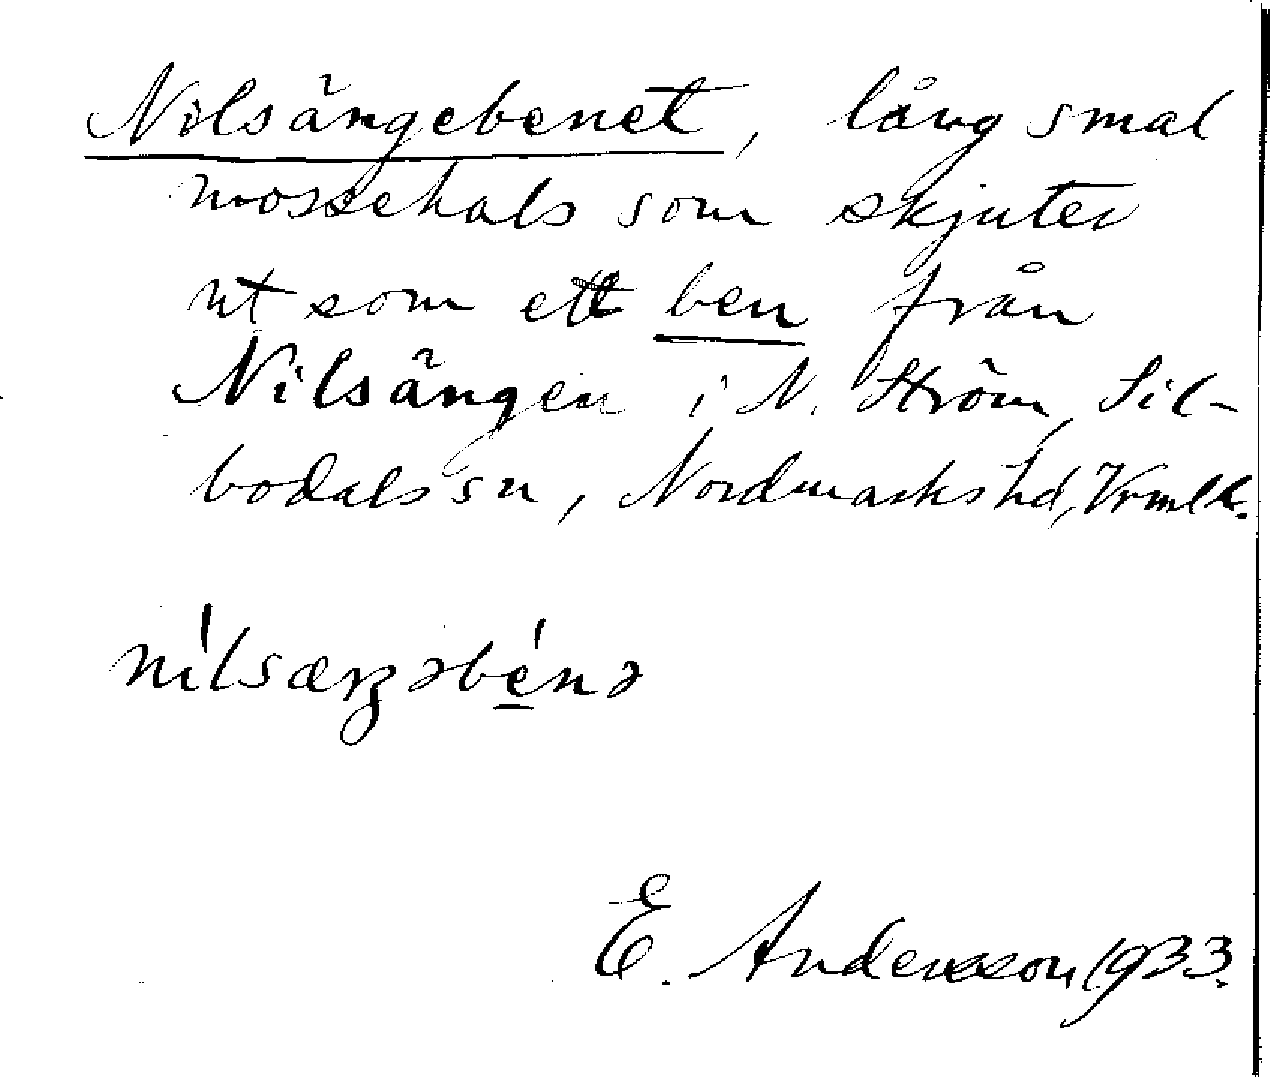 Nilsängebenet, lång smal
mossehals som skjuter
ut som ett ben från
Nilsängen i N. Ström, Sil-
bodals sn, Nordmarks hd, Vrmlk.
nílsæŋəbénə
É. Andersson 1933.